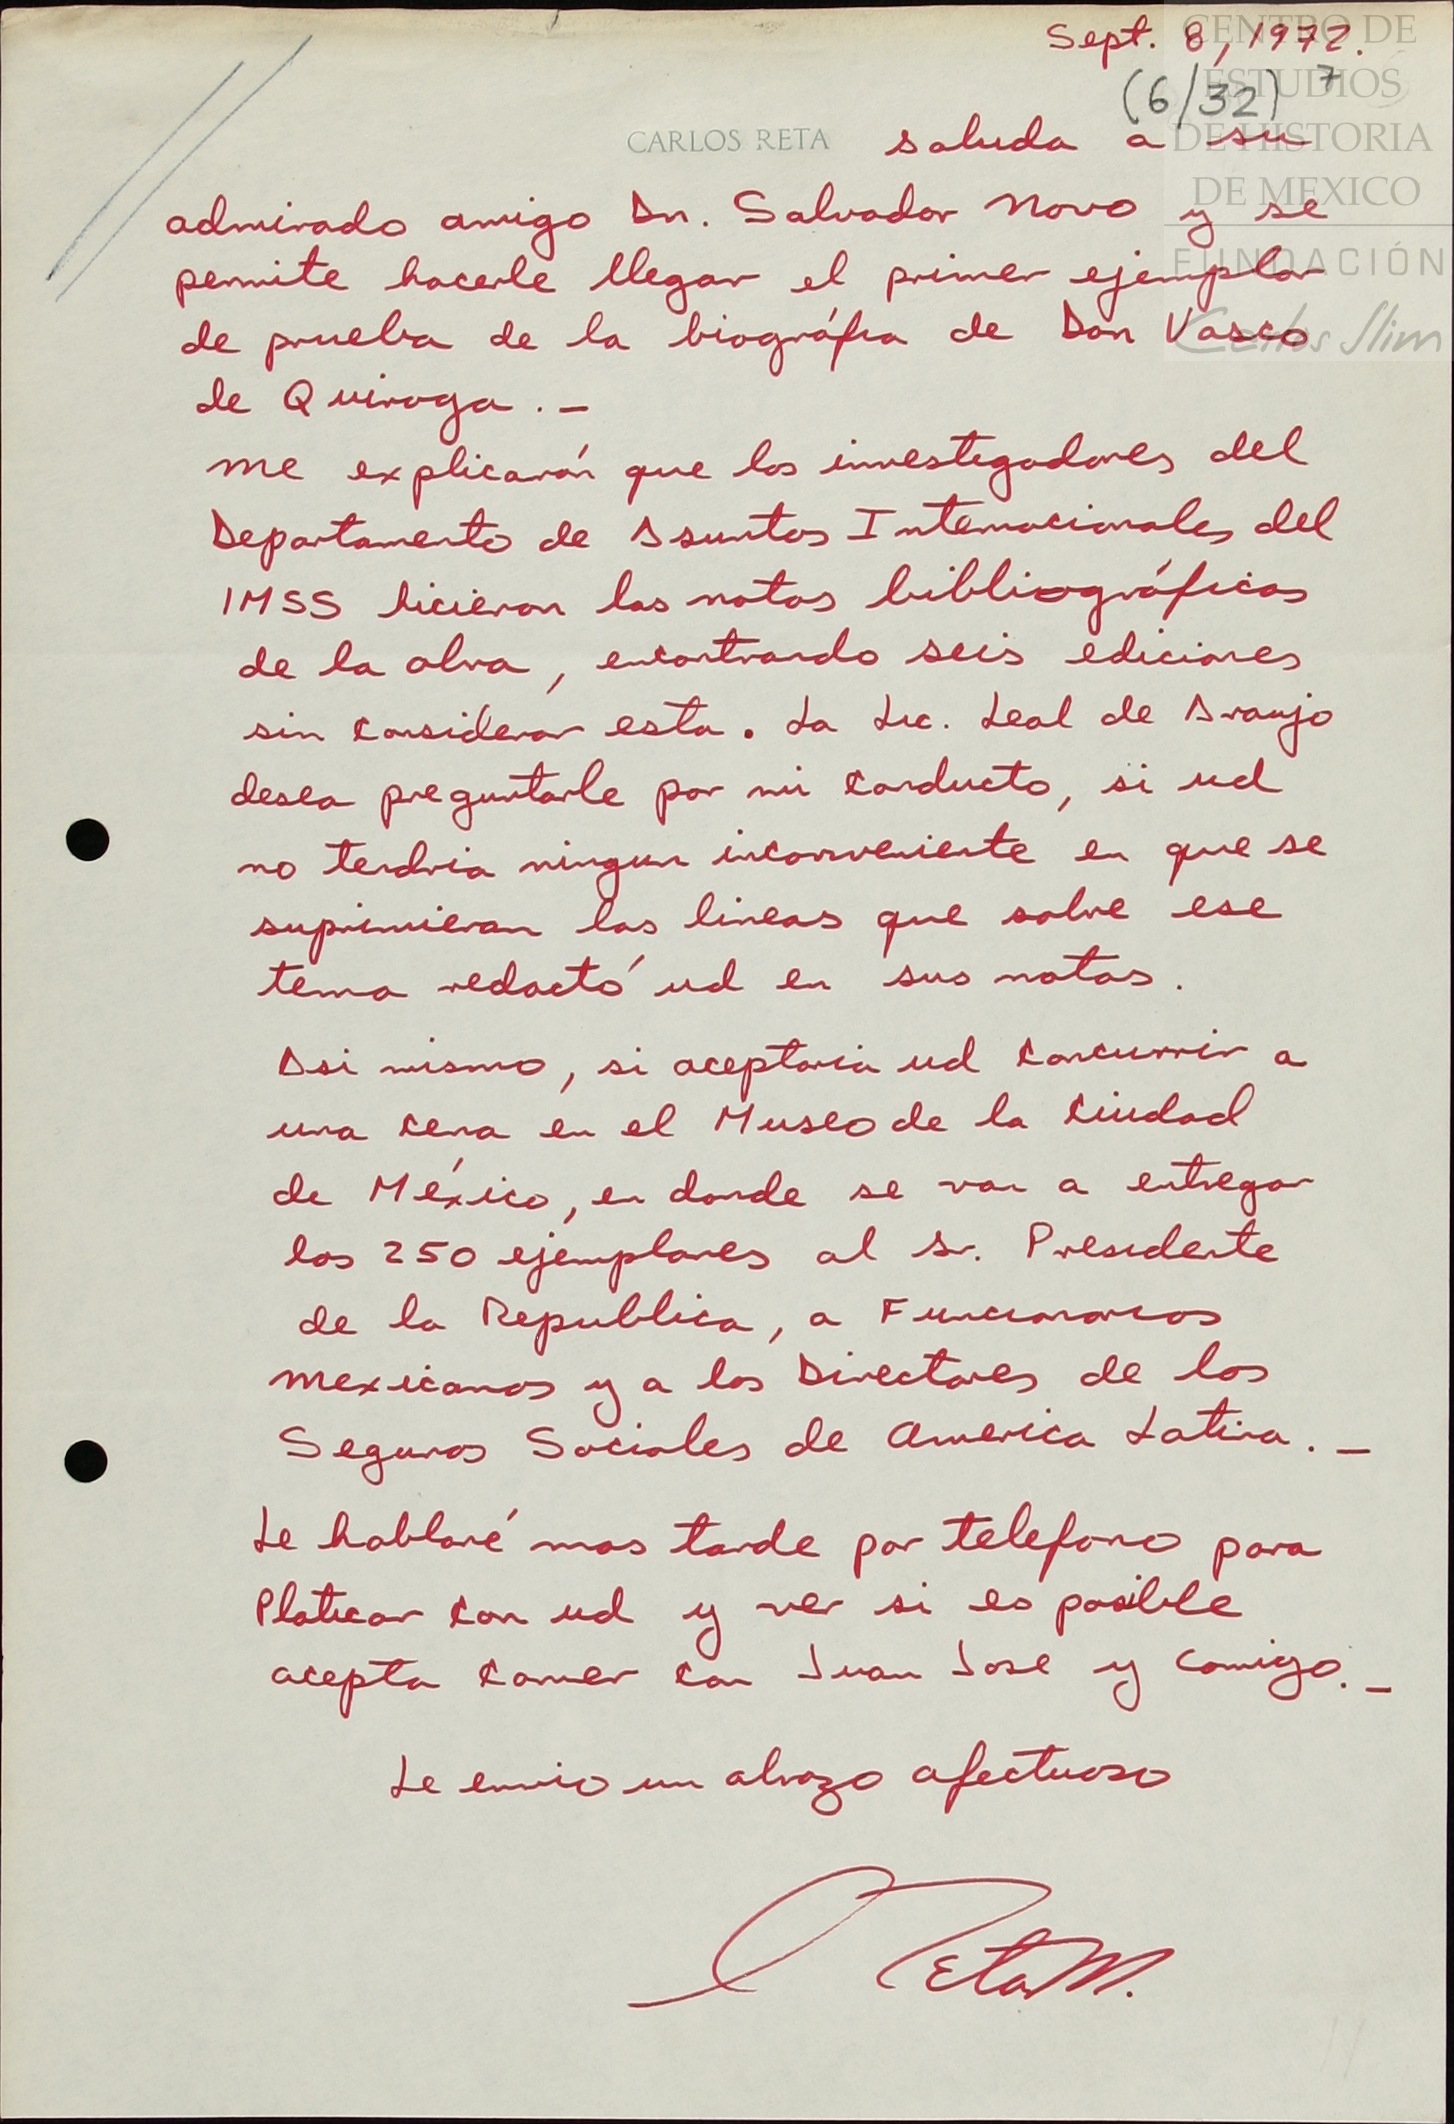 Sept. 8, 1972.
(6/32) 7
CENTRO DE
ESTUDIOS
DE HISTORIA
DE MEXICO
FUNDACIÓN
Carlos Slim
CARLOS RETA saluda a su
admirado amigo Dn. Salvador Novo y se
permite hacerle llegar el primer ejemplar
de prueba de la biográfia de Don Vasco
de Quiroga. _
Me explicarón que los investigadores del
Departamento de Asuntos Internacionales del
IMSS hicieron las notas bibliográficas
de la obra, encontrando seis ediciones
sin considerar esta. La Lic. Leal de Araujo
desea preguntarle por mi conducto, si ud
no tendria ningun inconveniente en que se
suprimieran las lineas que sobre ese
tema redactó ud en sus notas.
Asi mismo, si aceptaria ud concurrir a
una cena en el Museo de la Ciudad
de México, en donde se van a entregar
los 250 ejemplares al Sr. Presidente
de la Republica, a Funcionarios
mexicanos y a los Directores de los
Seguros Sociales de America Latina. _
Le hablaré mas tarde por telefono para
Platicar con ud y ver si es posible
acepta comer con Juan José y Comigo. _
Le envio un abrazo afectuoso
C Reta M.